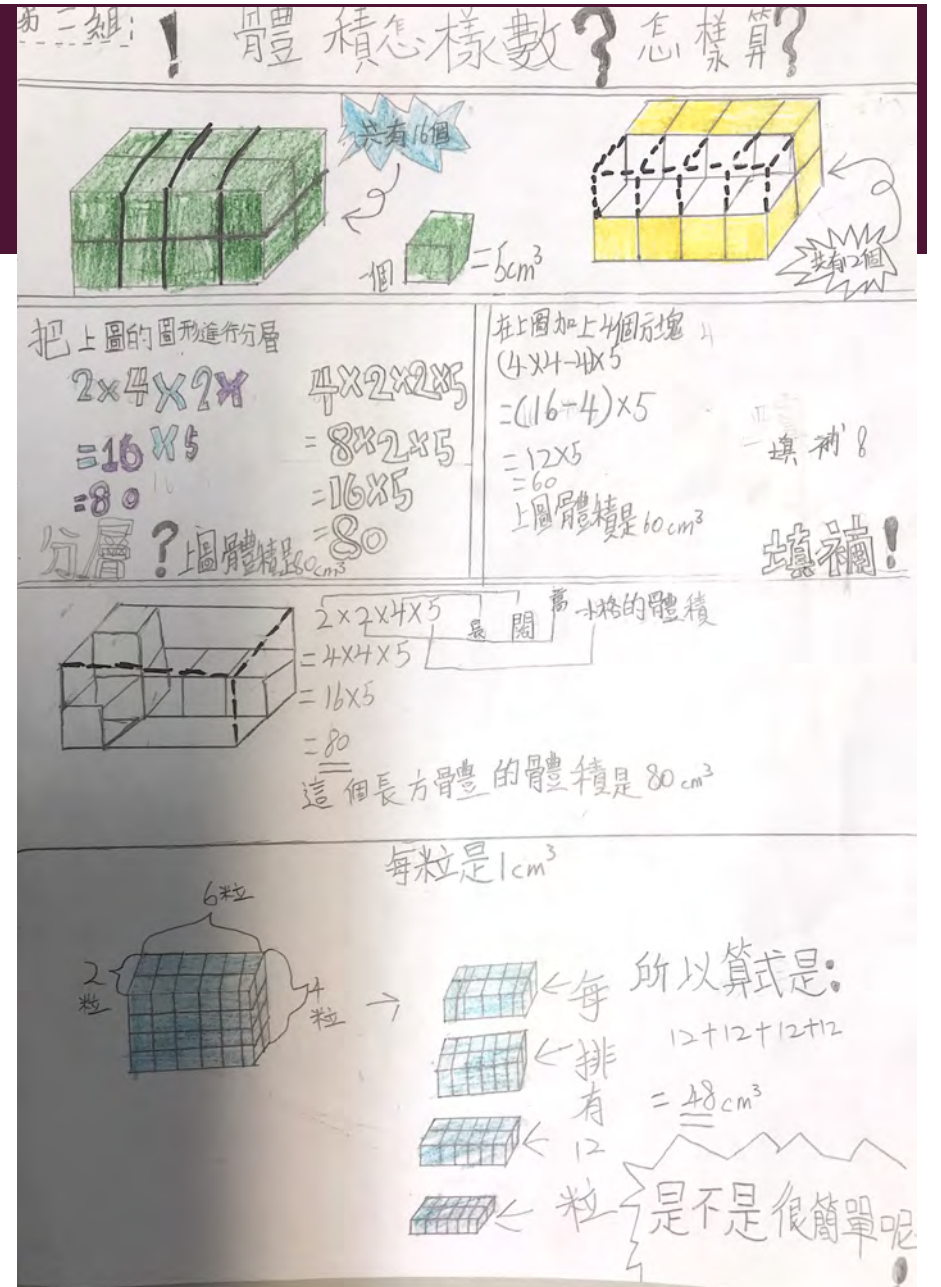 第二組:! 體積怎樣數?怎樣算?
共有16個
一個 =5cm³
共有12個
把上圖的圖形進行分層
2×4×2×
=16×5
=80
4×2×2×5
=8×2×5
=16×5
=80
分層?上圖體積是80cm³
在上圖加上4個方塊
(4×4-4)×5
=(16-4)×5
=12×5
=60
上圖體積是60cm³
填補
填補!
2×2×4×5
長 闊 高 一小格的體積
=4×4×5
=16×5
=80
這個長方體的體積是80cm³
每粒是1cm³
6粒
2粒
4粒
每排有12粒
所以算式是:
12+12+12+12
=48cm³
是不是很簡單呢!